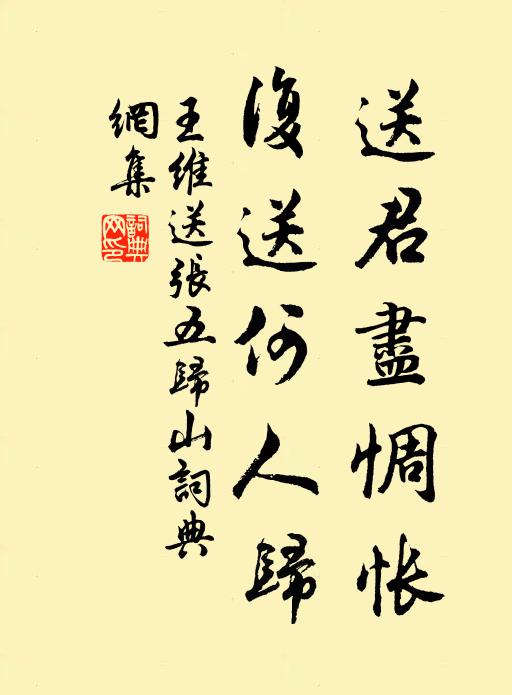 送君盡惆悵
復送何人歸
王維送張五歸山詞典
網集
詞典網印